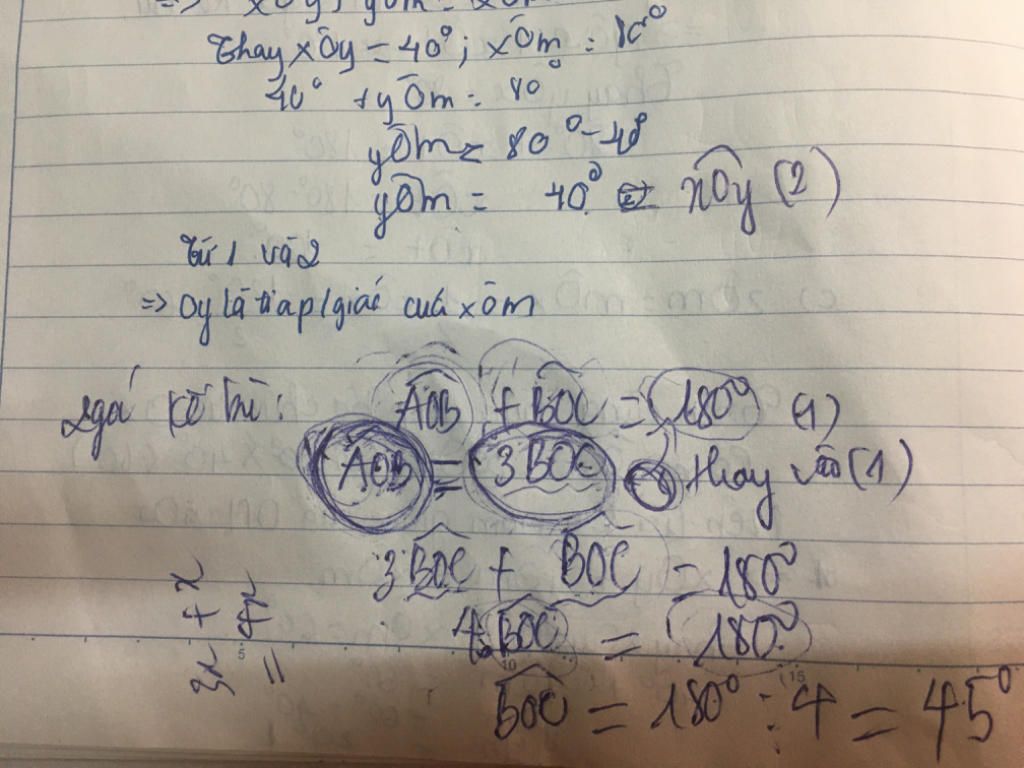 => xOy + yOm = xOm
Thay xOy = 40°; xOm = 80°
40° + yOm = 80
yOm = 80° - 40°
yOm = 40° = xOy (2)
Từ 1 và 2
=> Oy là tia p/giác của xOm
kề bù: AOB + BOC = 180° (1)
AOB = 3BOC thay vào (1)
3BOC + BOC = 180°
4.BOC = 180°
BOC = 180° : 4 = 45°
3x + x
= 4x